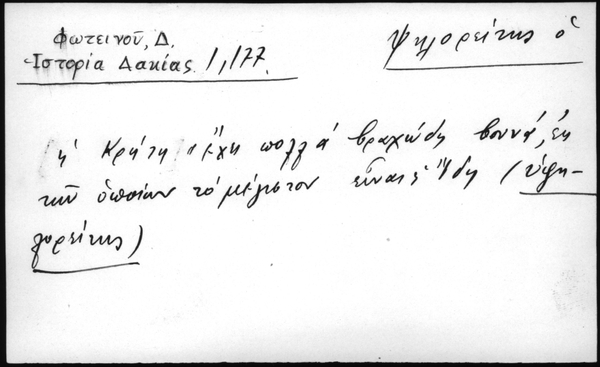 Φωτεινοῦ, Δ.
Ἱστορία Δακίας. 1, 177.
Ψηλορείτης ὁ
(ἡ Κρήτη) "ἔχη πολλά βραχώδη βουνά, ἐκ
τῶν ὁποίων τό μέγιστον εἶναι ἡ Ἴδη (ὑψη-
λορείτης)